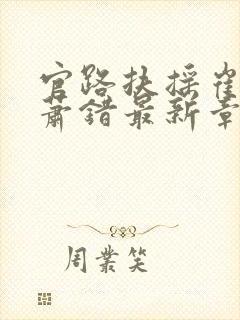 官路扶摇崔
肃错最新章
周業笑